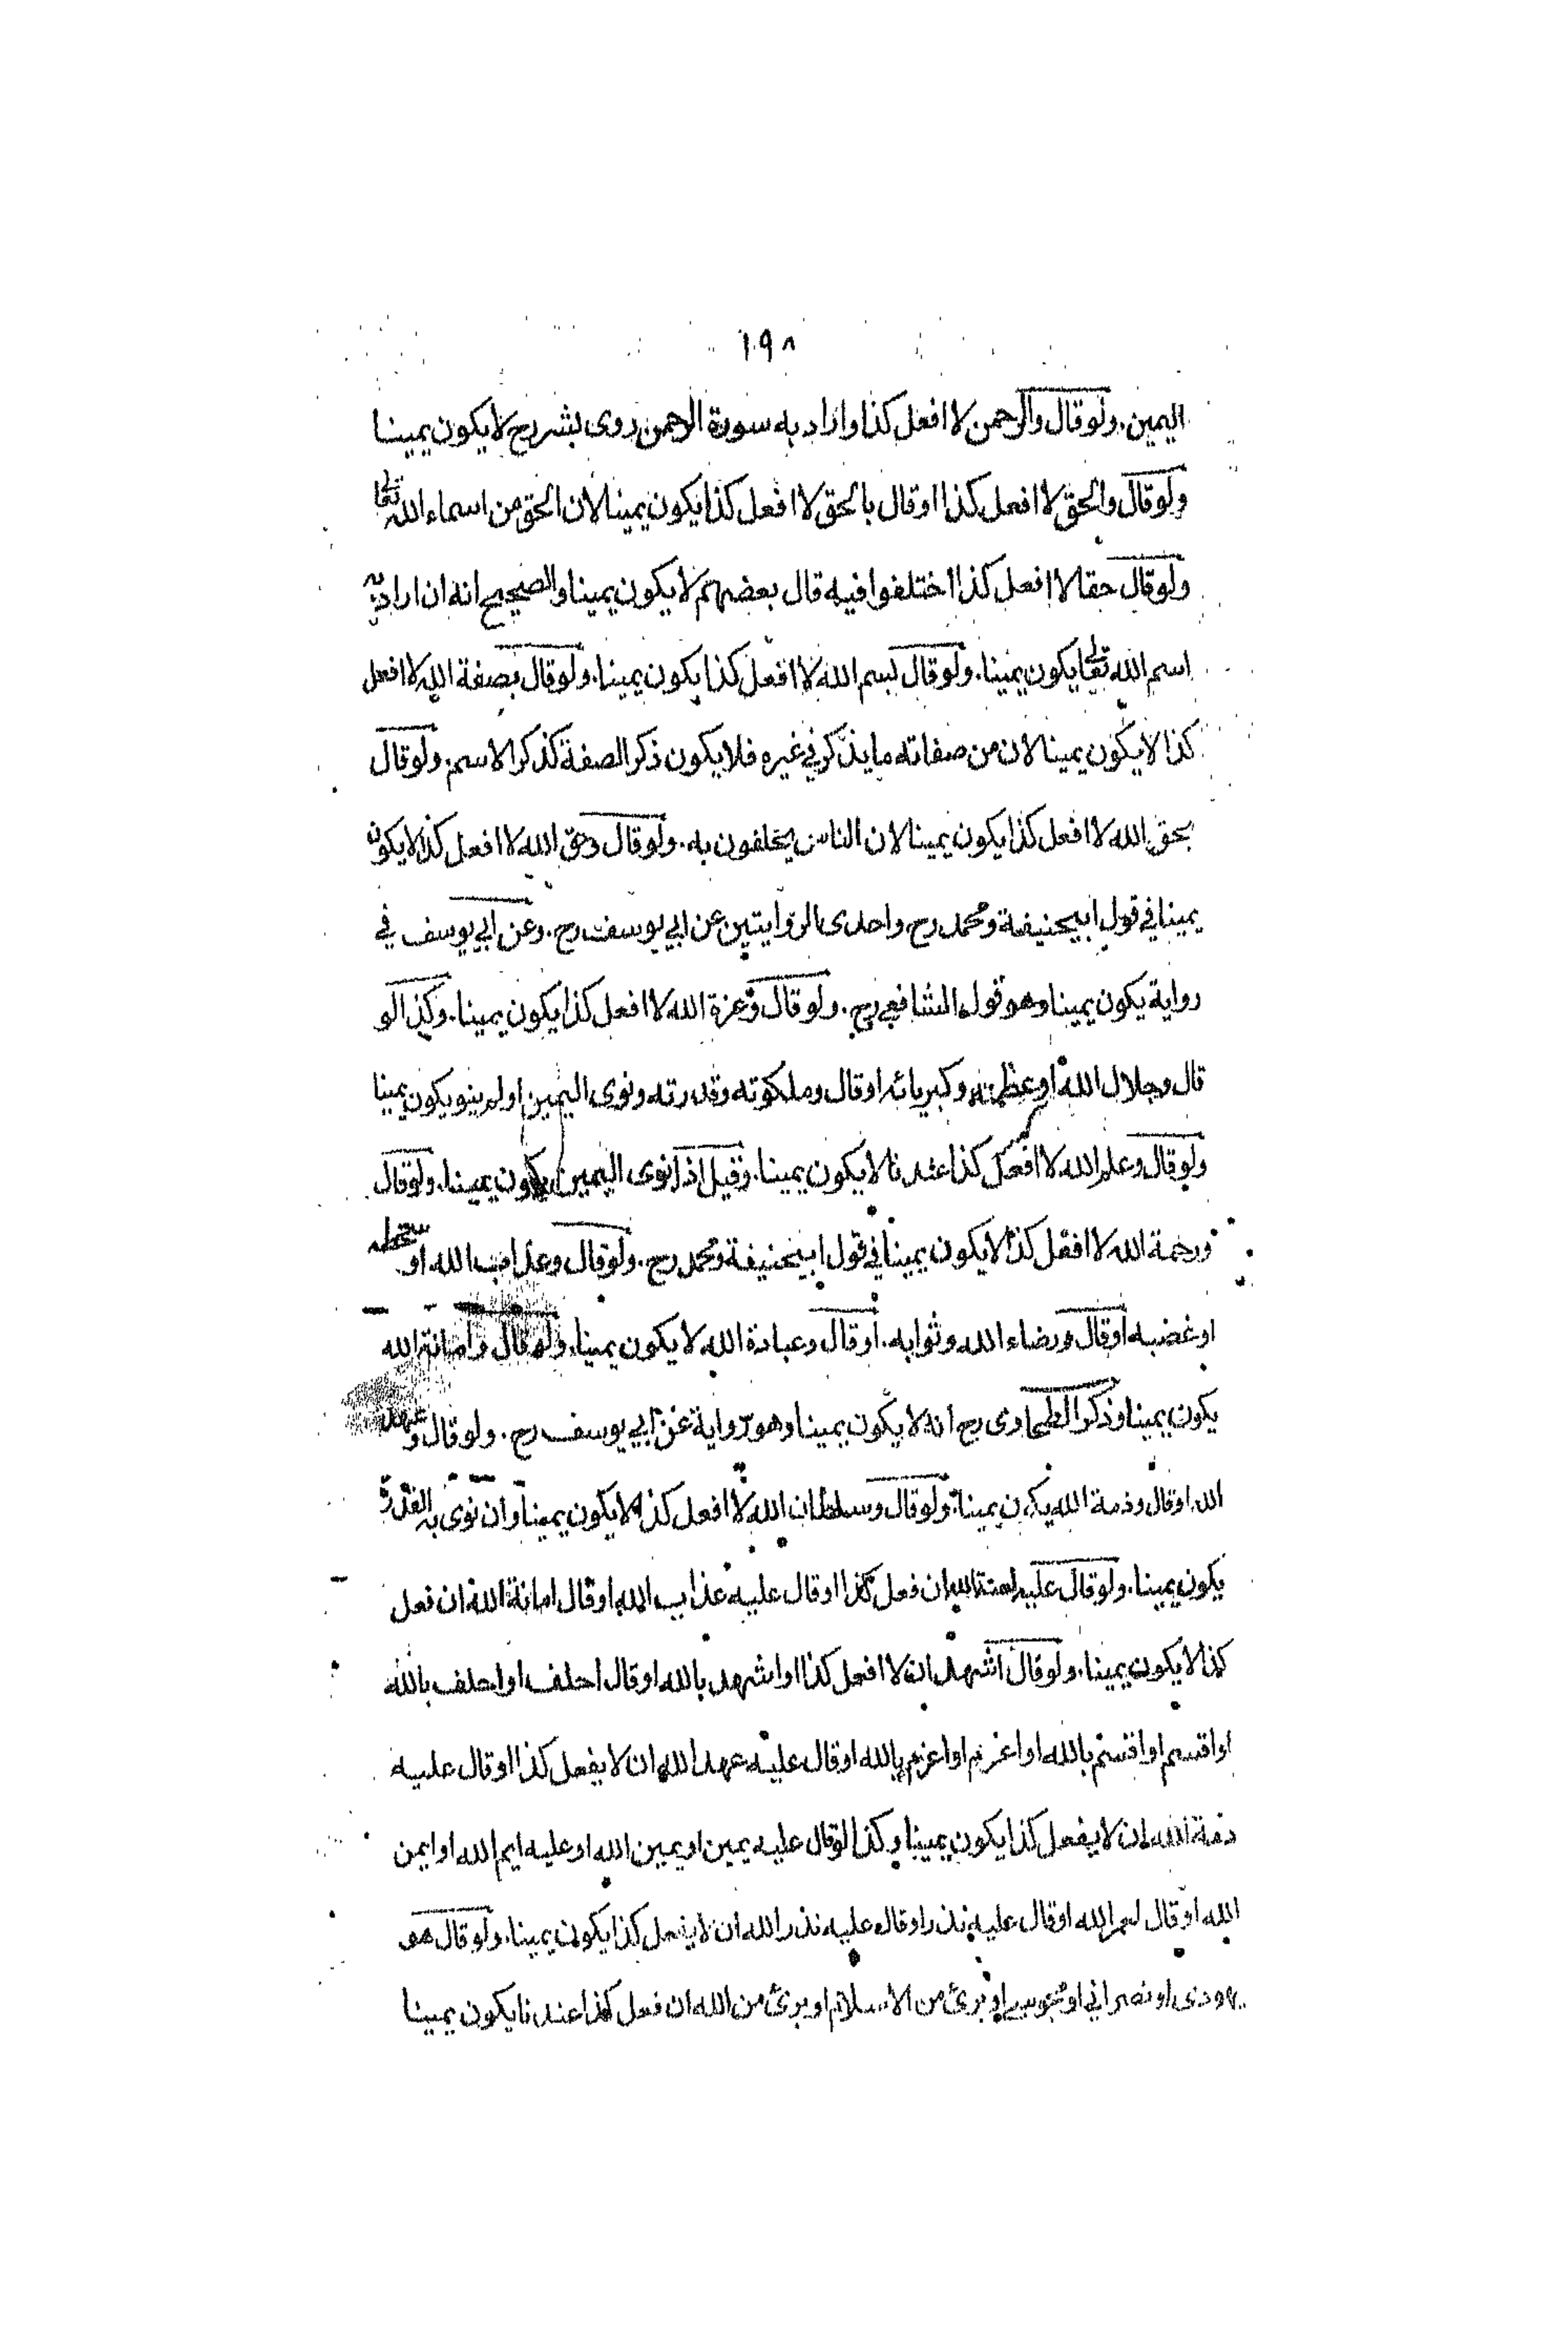 ١٩٨
اليمين. ولو قال والرحمن لا افعل كذا واراد به سورة الرحمن روى بشر رح لا يكون يمينا
ولو قال والحق لا افعل كذا او قال بالحق لا افعل كذا يكون يمينا لان الحق من اسماء الله تعالى
ولو قال حقا لا افعل كذا اختلفوا فيه قال بعضهم لا يكون يمينا والصحيح انه ان اراد به
اسم الله تعالى يكون يمينا. ولو قال بسم الله لا افعل كذا يكون يمينا. ولو قال بصفة الله لا افعل
كذا لا يكون يمينا لان من صفاته ما يذكر في غيره فلا يكون ذكر الصفة كذكر الاسم ولو قال
بحق الله لا افعل كذا يكون يمينا لان الناس يحلفون به. ولو قال وحق الله لا افعل كذا لا يكون
يمينا في قول ابيحنيفة ومحمد رح واحدى الروايتين عن ابي يوسف رح. وعن ابي يوسف في
رواية يكون يمينا وهو قول الشافعي رح. ولو قال وعزة الله لا افعل كذا يكون يمينا. وكذا لو
قال وجلال الله او عظمته وكبريائه او قال وملكوته وقدرته ونوى اليمين او لم ينو يكون يمينا
ولو قال وعلم الله لا افعل كذا عندنا لا يكون يمينا. وقيل اذا نوى اليمين يكون يمينا. ولو قال
ورحمة الله لا افعل كذا لا يكون يمينا في قول ابيحنيفة ومحمد رح. ولو قال وعذاب الله او سخطه
او غضبه او قال ورضاء الله وثوابه. او قال وعبادة الله لا يكون يمينا. ولو قال وامانة الله
يكون يمينا وذكر الطحاوى رح انه لا يكون يمينا وهو رواية عن ابي يوسف رح. ولو قال وعهد
الله او قال وذمة الله يكون يمينا. ولو قال وسلطان الله لا افعل كذا لا يكون يمينا وان نوى به القدرة
يكون يمينا. ولو قال عليه لعنة الله ان فعل كذا او قال عليه عذاب الله او قال امانة الله ان فعل
كذا لا يكون يمينا. ولو قال اشهد ان لا افعل كذا او اشهد بالله او قال احلف او احلف بالله
او اقسم او اقسم بالله او اعزم او اعزم بالله او قال عليه عهد الله ان لا يفعل كذا او قال عليه
ذمة الله ان لا يفعل كذا يكون يمينا وكذا لو قال عليه يمين او يمين الله او عليه ايم الله او ايمن
الله او قال لعمر الله او قال عليه نذر او قال عليه نذر الله ان لا يفعل كذا يكون يمينا. ولو قال هو
يهودى او نصراني او مجوسي او برئ من الاسلام او برئ من الله ان فعل كذا عندنا يكون يمينا